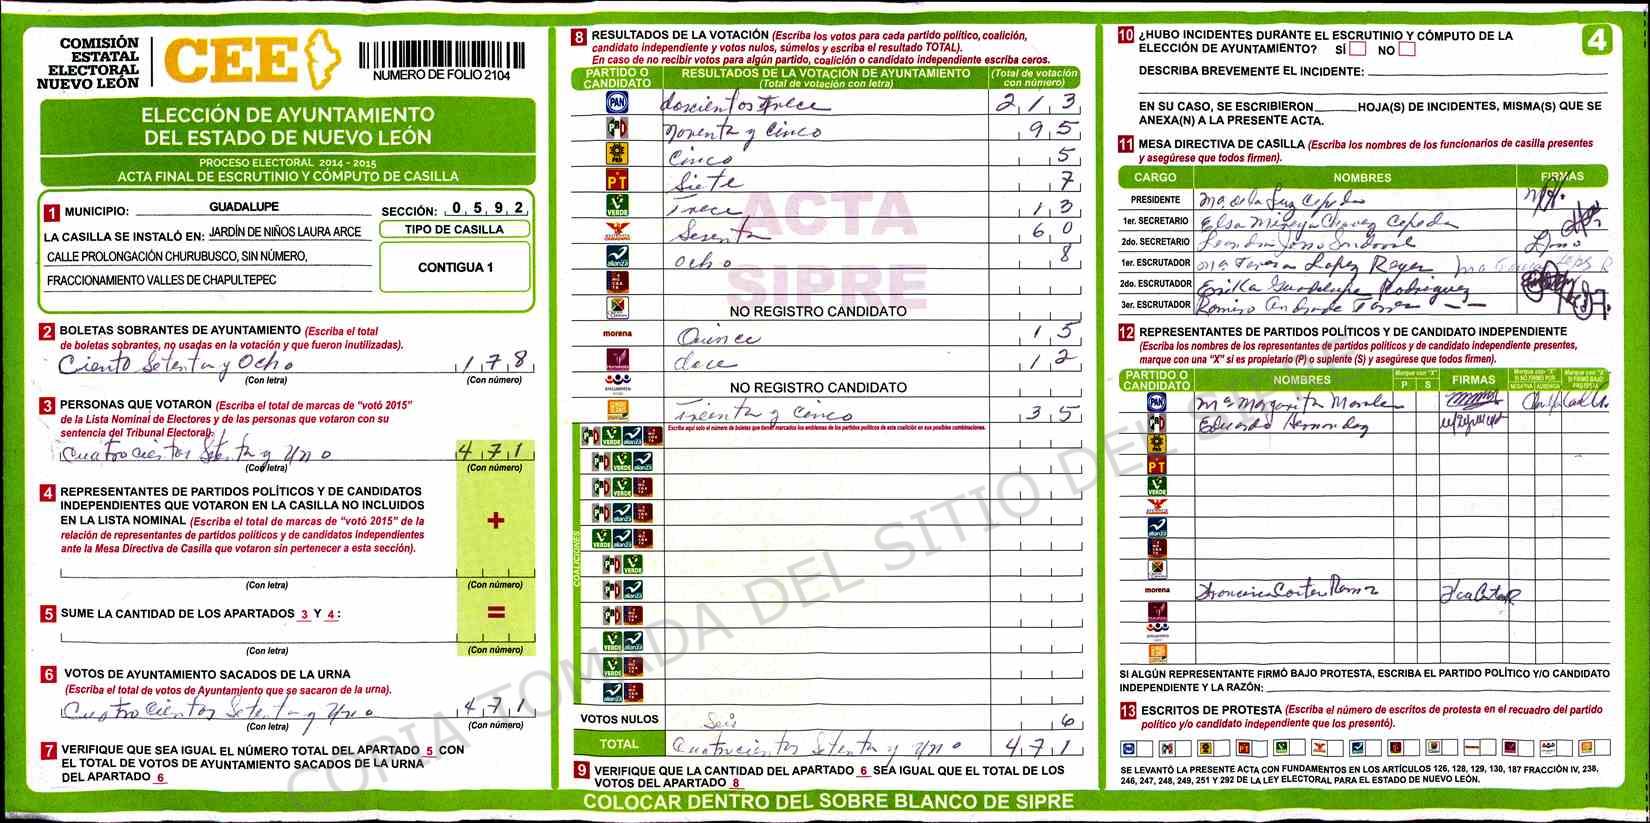 COMISIÓN
ESTATAL
ELECTORAL
NUEVO LEÓN
CEE
NUMERO DE FOLIO 2104
ELECCIÓN DE AYUNTAMIENTO
DEL ESTADO DE NUEVO LEÓN
PROCESO ELECTORAL 2014 - 2015
ACTA FINAL DE ESCRUTINIO Y CÓMPUTO DE CASILLA
1 MUNICIPIO: GUADALUPE SECCIÓN: 0 5 9 2
LA CASILLA SE INSTALÓ EN: JARDÍN DE NIÑOS LAURA ARCE
CALLE PROLONGACIÓN CHURUBUSCO, SIN NÚMERO,
FRACCIONAMIENTO VALLES DE CHAPULTEPEC
TIPO DE CASILLA
CONTIGUA 1
2 BOLETAS SOBRANTES DE AYUNTAMIENTO (Escriba el total
de boletas sobrantes, no usadas en la votación y que fueron inutilizadas).
Ciento Setenta y Ocho 178
(Con letra) (Con número)
3 PERSONAS QUE VOTARON (Escriba el total de marcas de "votó 2015"
de la Lista Nominal de Electores y de las personas que votaron con su
sentencia del Tribunal Electoral).
Cuatrocientos Setenta y Uno 471
(Con letra) (Con número)
4 REPRESENTANTES DE PARTIDOS POLÍTICOS Y DE CANDIDATOS
INDEPENDIENTES QUE VOTARON EN LA CASILLA NO INCLUIDOS
EN LA LISTA NOMINAL (Escriba el total de marcas de "votó 2015" de la
relación de representantes de partidos políticos y de candidatos independientes
ante la Mesa Directiva de Casilla que votaron sin pertenecer a esta sección).
+
(Con letra) (Con número)
5 SUME LA CANTIDAD DE LOS APARTADOS 3 Y 4:
=
(Con letra) (Con número)
6 VOTOS DE AYUNTAMIENTO SACADOS DE LA URNA
(Escriba el total de votos de Ayuntamiento que se sacaron de la urna).
Cuatrocientos Setenta y Uno 471
(Con letra) (Con número)
7 VERIFIQUE QUE SEA IGUAL EL NÚMERO TOTAL DEL APARTADO 5 CON
EL TOTAL DE VOTOS DE AYUNTAMIENTO SACADOS DE LA URNA
DEL APARTADO 6
8 RESULTADOS DE LA VOTACIÓN (Escriba los votos para cada partido político, coalición,
candidato independiente y votos nulos, súmelos y escriba el resultado TOTAL).
En caso de no recibir votos para algún partido, coalición o candidato independiente escriba ceros.
PARTIDO O CANDIDATO
RESULTADOS DE LA VOTACIÓN DE AYUNTAMIENTO
(Total de votación con letra)
(Total de votación con número)
PAN doscientos trece 213
PRD Noventa y Cinco 95
PRD Cinco 5
PT Siete 7
VERDE Trece 13
Sesenta 60
alianza Ocho 8
NO REGISTRO CANDIDATO
morena Quince 15
doce 12
NO REGISTRO CANDIDATO
Treinta y Cinco 35
Escriba aquí solo el número de boletas que tienen marcados los emblemas de los partidos políticos de esta coalición en sus posibles combinaciones.
COALICIONES
VOTOS NULOS Seis 6
TOTAL Cuatrocientos Setenta y Uno 471
9 VERIFIQUE QUE LA CANTIDAD DEL APARTADO 6 SEA IGUAL QUE EL TOTAL DE LOS
VOTOS DEL APARTADO 8
COLOCAR DENTRO DEL SOBRE BLANCO DE SIPRE
ACTA
SIPRE
COPIA TOMADA DEL SITIO DEL SIPRE
10 ¿HUBO INCIDENTES DURANTE EL ESCRUTINIO Y CÓMPUTO DE LA
ELECCIÓN DE AYUNTAMIENTO? SÍ NO
4
DESCRIBA BREVEMENTE EL INCIDENTE:
EN SU CASO, SE ESCRIBIERON HOJA(S) DE INCIDENTES, MISMA(S) QUE SE
ANEXA(N) A LA PRESENTE ACTA.
11 MESA DIRECTIVA DE CASILLA (Escriba los nombres de los funcionarios de casilla presentes
y asegúrese que todos firmen).
CARGO NOMBRES FIRMAS
PRESIDENTE Ma de la Luz Cepeda
1er. SECRETARIO Elsa Mireya Chavez Cepeda
2do. SECRETARIO Sandoval
1er. ESCRUTADOR Ma Teresa Lopez Reyes
2do. ESCRUTADOR Erika Guadalupe Rodriguez
3er. ESCRUTADOR Ramiro Andrade Torres
12 REPRESENTANTES DE PARTIDOS POLÍTICOS Y DE CANDIDATO INDEPENDIENTE
(Escriba los nombres de los representantes de partidos políticos y de candidato independiente presentes,
marque con una "X" si es propietario (P) o suplente (S) y asegúrese que todos firmen).
PARTIDO O CANDIDATO NOMBRES Marque con "X" P S FIRMAS
PAN Ma Margarita Morales
Eduardo Hernandez
PRD
PT
VERDE
morena Francisca Cortez Ramos
SI ALGÚN REPRESENTANTE FIRMÓ BAJO PROTESTA, ESCRIBA EL PARTIDO POLÍTICO Y/O CANDIDATO
INDEPENDIENTE Y LA RAZÓN:
13 ESCRITOS DE PROTESTA (Escriba el número de escritos de protesta en el recuadro del partido
político y/o candidato independiente que los presentó).
SE LEVANTÓ LA PRESENTE ACTA CON FUNDAMENTOS EN LOS ARTÍCULOS 126, 128, 129, 130, 187 FRACCIÓN IV, 238,
246, 247, 248, 249, 251 Y 292 DE LA LEY ELECTORAL PARA EL ESTADO DE NUEVO LEÓN.